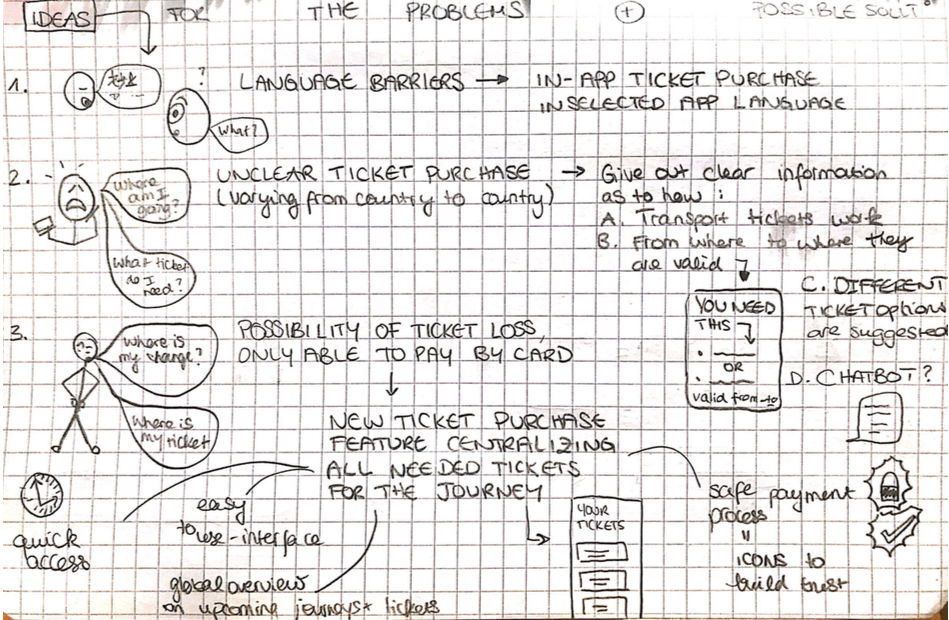 IDEAS FOR THE PROBLEMS + POSSIBLE SOLUT°
1.
?
What?
LANGUAGE BARRIERS → IN-APP TICKET PURCHASE
IN SELECTED APP LANGUAGE
2.
Where
am I
going?
What ticket
do I
need?
UNCLEAR TICKET PURCHASE →
(varying from country to country)
Give out clear information
as to how :
A. Transport tickets work
B. From where to where they
are valid
YOU NEED
THIS
OR
valid from-to
C. DIFFERENT
TICKET options
are suggested
D. CHATBOT?
3.
Where is
my change?
Where is
my ticket
POSSIBILITY OF TICKET LOSS,
ONLY ABLE TO PAY BY CARD
NEW TICKET PURCHASE
FEATURE CENTRALIZING
ALL NEEDED TICKETS
FOR THE JOURNEY
quick
access
easy
to use-interface
global overview
on upcoming journeys + tickets
YOUR
TICKETS
safe payment
process
"
ICONS to
build trust